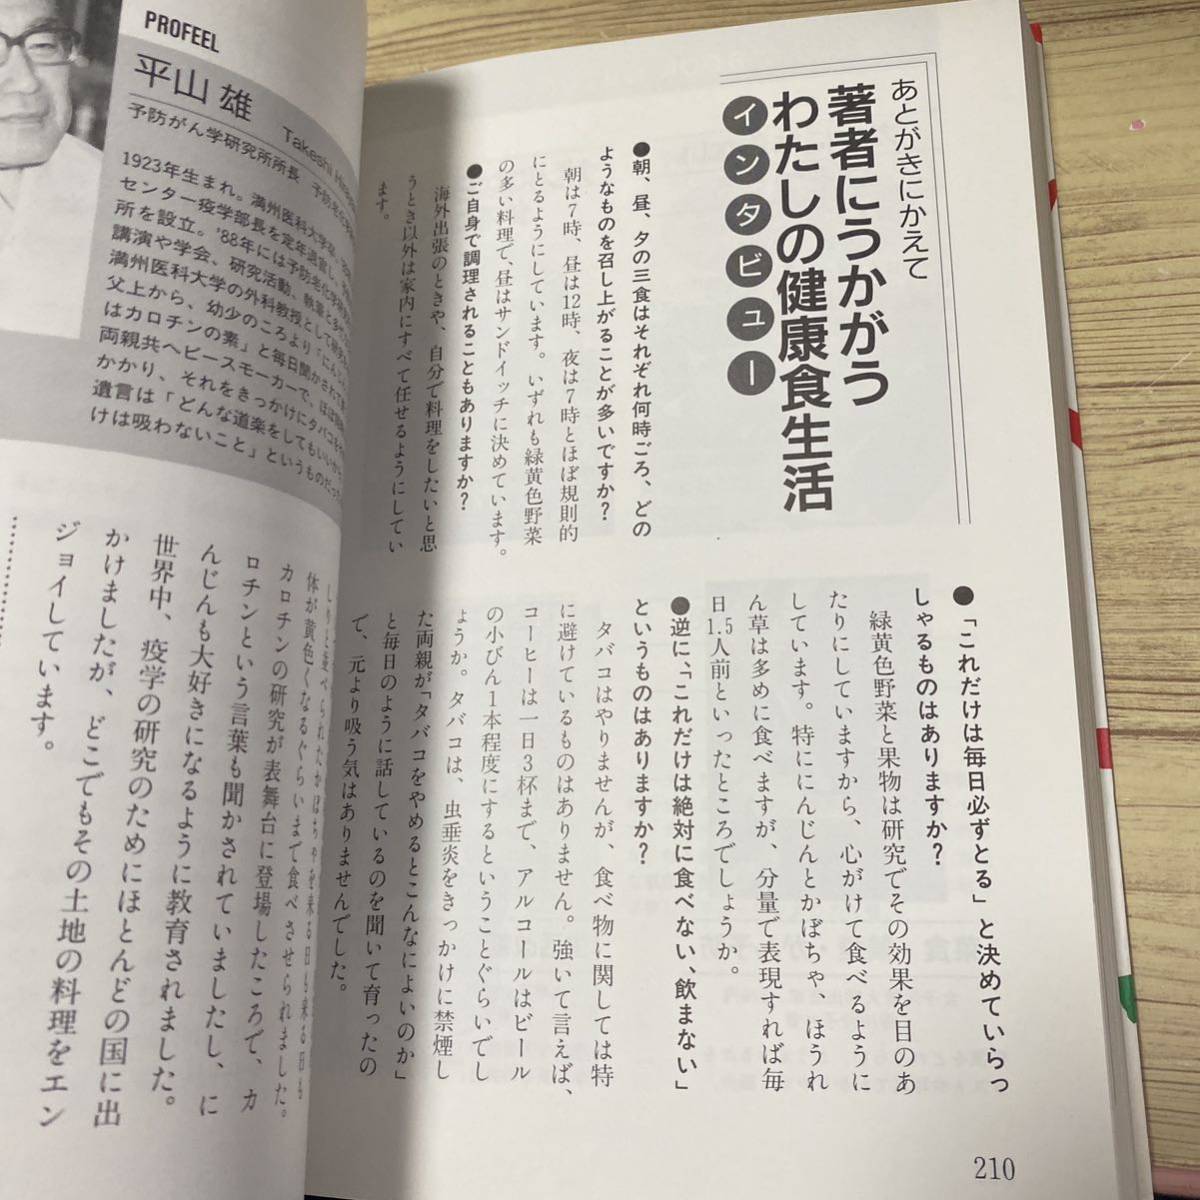 あとがきにかえて
著者にうかがう
わたしの健康食生活
インタビュー
●朝、昼、夕の三食はそれぞれ何時ごろ、どの
ようなものを召し上がることが多いですか？
朝は7時、昼は12時、夜は7時とほぼ規則的
にとるようにしています。いずれも緑黄色野菜
の多い料理で、昼はサンドイッチに決めています。
●ご自身で調理されることもありますか？
海外出張のときや、自分で料理をしたいと思
うとき以外は家内にすべて任せるようにしてい
ます。
●「これだけは毎日必ずとる」と決めていらっ
しゃるものはありますか？
緑黄色野菜と果物は研究でその効果を目のあ
たりにしていますから、心がけて食べるように
しています。特ににんじんとかぼちゃ、ほうれ
ん草は多めに食べますが、分量で表現すれば毎
日1.5人前といったところでしょうか。
●逆に、「これだけは絶対に食べない、飲まない」
というものはありますか？
タバコはやりませんが、食べ物に関しては特
に避けているものはありません。強いて言えば、
コーヒーは一日3杯まで、アルコールはビール
の小びん1本程度にするということぐらいでし
ょうか。タバコは、虫垂炎をきっかけに禁煙し
た両親が「タバコをやめるとこんなによいのか」
と毎日のように話しているのを聞いて育ったの
で、元より吸う気はありませんでした。
210
PROFEEL
平山 雄
Takeshi
予防がん学研究所所長
1923年生まれ。満州医科大学卒
センター疫学部長を定年退官し
所を設立。'88年には予防老化学
講演や学会、研究活動、執筆と多
満州医科大学の外科教授として
父上から、幼少のころより「にんじん
はカロチンの素」と毎日聞かされて
両親共ヘビースモーカーで、ほぼ
かかり、それをきっかけにタバコを
遺言は「どんな道楽をしてもいいから
けは吸わないこと」というものだった
体が黄色くなるぐらいまで食べさせられました。
カロチンの研究が表舞台に登場したころで、カ
ロチンという言葉も聞かされていましたし、に
んじんも大好きになるように教育されました。
世界中、疫学の研究のためにほとんどの国に出
かけましたが、どこでもその土地の料理をエン
ジョイしています。